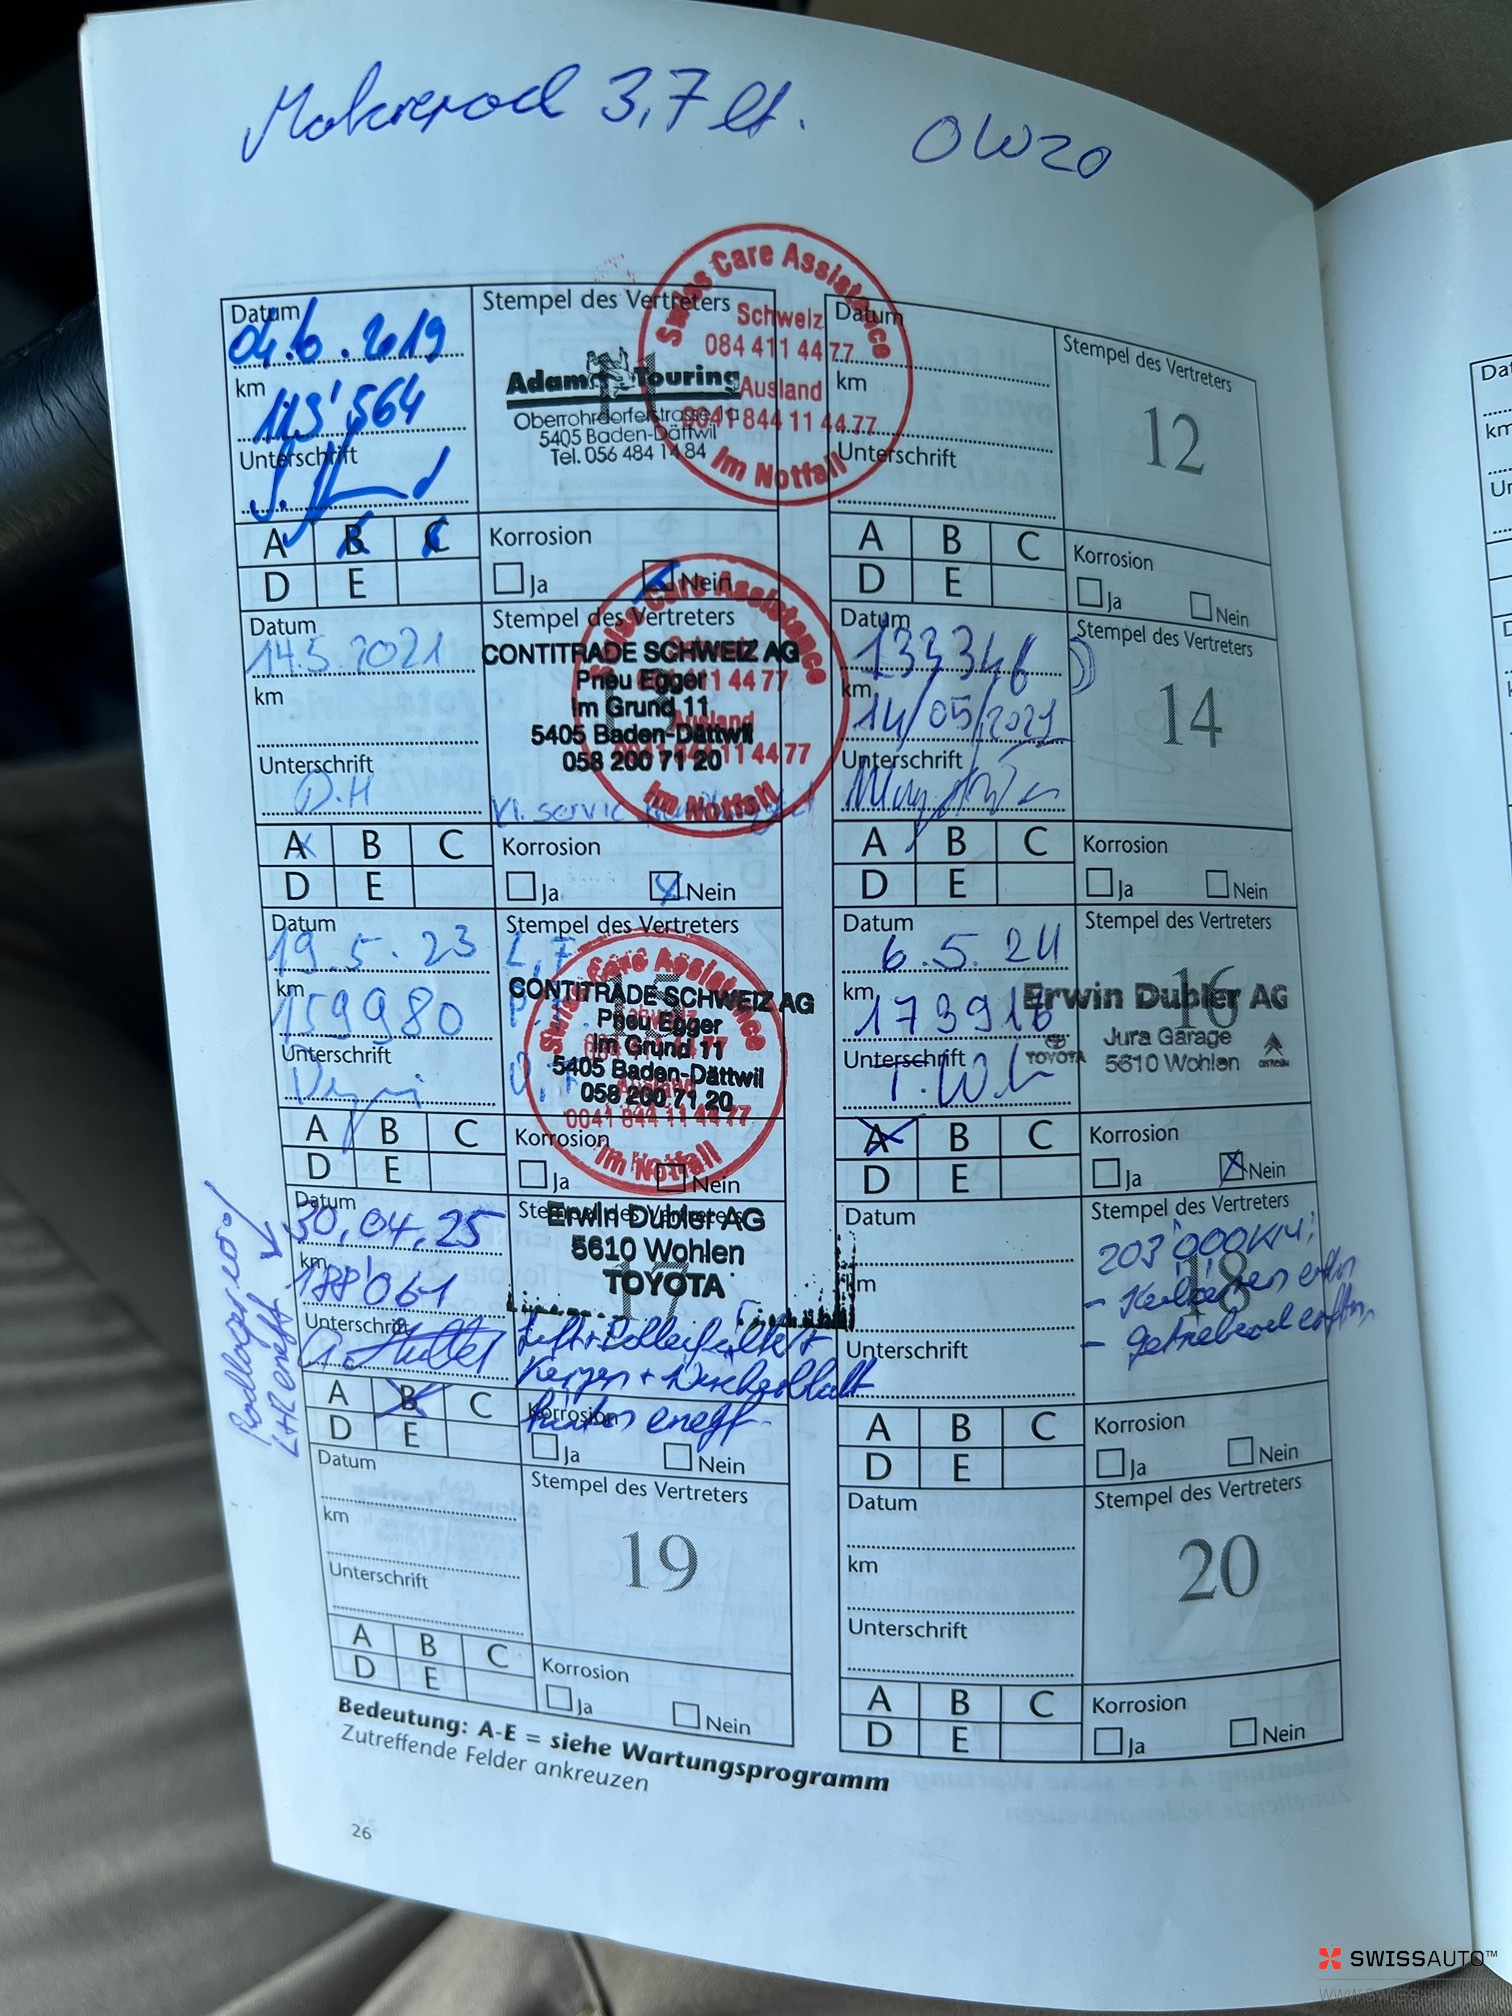 3,7 lt. 0W20
Datum
04.6.2019
km
113'564
Unterschrift
Stempel des Vertreters
Adam Touring
Oberrohrdorferstrasse 1a
5405 Baden-Dättwil
Tel. 056 484 14 84
Swiss Care Assistance
Schweiz
084 411 44 77
Ausland
0041 844 11 44 77
Im Notfall
A B C
D E
Korrosion
Ja Nein
Datum
km
Unterschrift
Stempel des Vertreters
12
A B C
D E
Korrosion
Ja Nein
Datum
14.5.2021
km
Unterschrift
D.H
Stempel des Vertreters
CONTITRADE SCHWEIZ AG
Pneu Egger
Im Grund 11
5405 Baden-Dättwil
058 200 71 20
Care Assistance
Ausland
0041 844 11 44 77
Im Notfall
A B C
D E
Korrosion
Ja Nein
Datum
133346
km
14/05/2021
Unterschrift
Stempel des Vertreters
14
A B C
D E
Korrosion
Ja Nein
Datum
19.5.23
km
159980
Unterschrift
Stempel des Vertreters
CONTITRADE SCHWEIZ AG
Pneu Egger
Im Grund 11
5405 Baden-Dättwil
058 200 71 20
Swiss Care Assistance
0041 844 11 44 77
Im Notfall
A B C
D E
Korrosion
Ja Nein
Datum
6.5.24
km
173916
Unterschrift
Stempel des Vertreters
16
Erwin Dubler AG
Jura Garage
5610 Wohlen
TOYOTA
CITROËN
A B C
D E
Korrosion
Ja Nein
Radlager
Datum
30.04.25
km
188'061
Unterschrift
Stempel des Vertreters
17
Erwin Dubler AG
5610 Wohlen
TOYOTA
Luft + Pollenfilter +
Kerzen + Wischerblatt
hinten
A B C
D E
Korrosion
Ja Nein
Datum
km
Unterschrift
Stempel des Vertreters
18
203'000KM:
-
- Getriebeoel
A B C
D E
Korrosion
Ja Nein
Datum
km
Unterschrift
Stempel des Vertreters
19
A B C
D E
Korrosion
Ja Nein
Datum
km
Unterschrift
Stempel des Vertreters
20
A B C
D E
Korrosion
Ja Nein
Bedeutung: A-E = siehe Wartungsprogramm
Zutreffende Felder ankreuzen
26
SWISSAUTO™